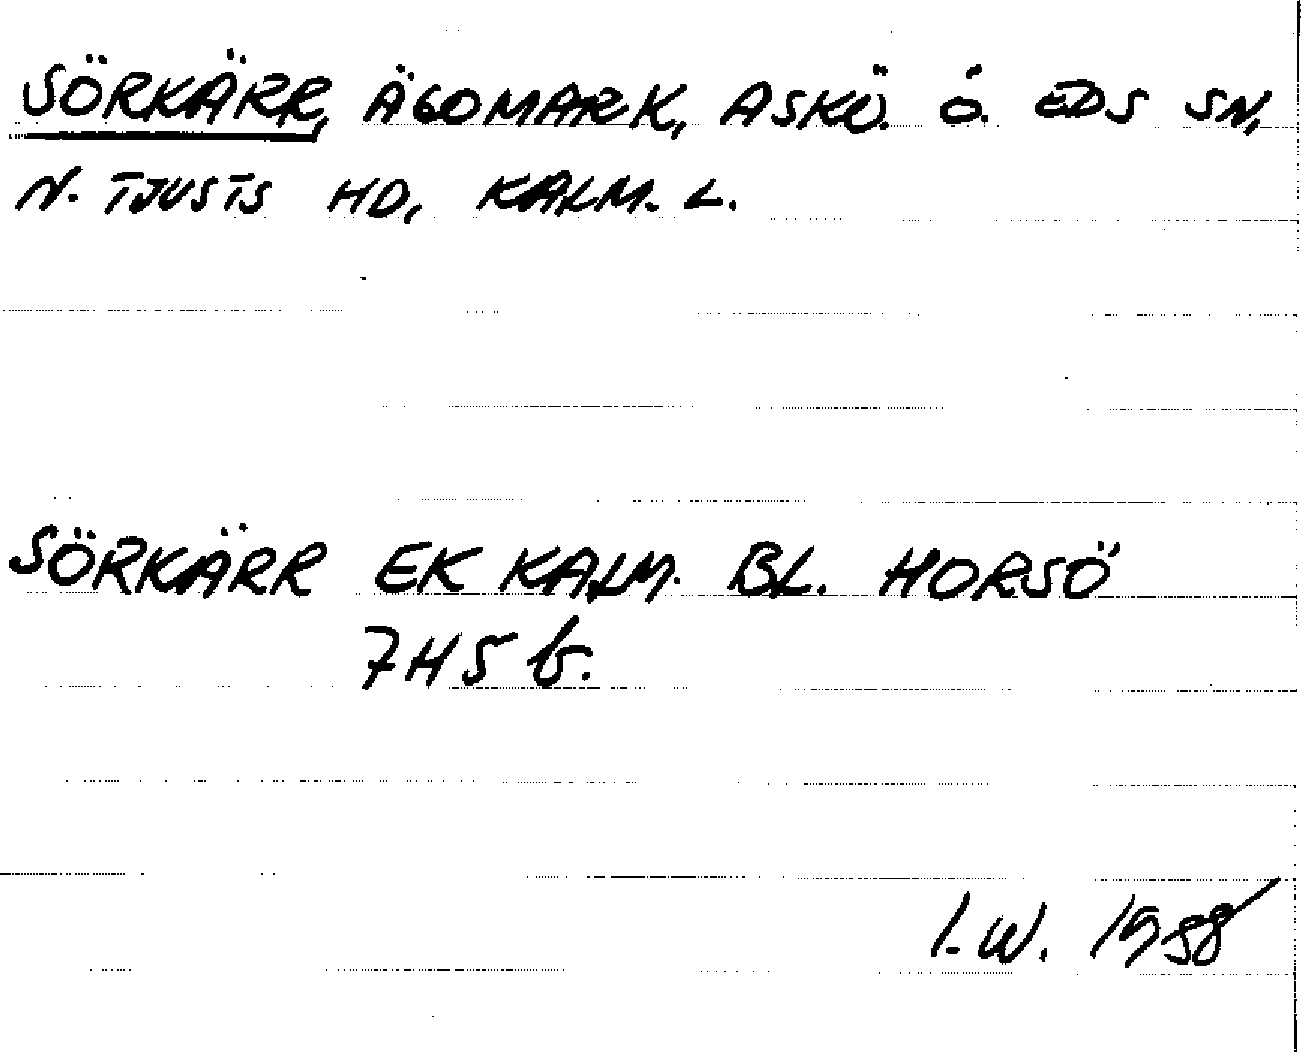 SÖRKÄRR, ÄGOMARK, ASKÖ. Ö. EDS SN,
N. TJUSTS HD, KALM. L.
SÖRKÄRR EK KALM. BL. HORSÖ
7H5b.
I.W. 1988